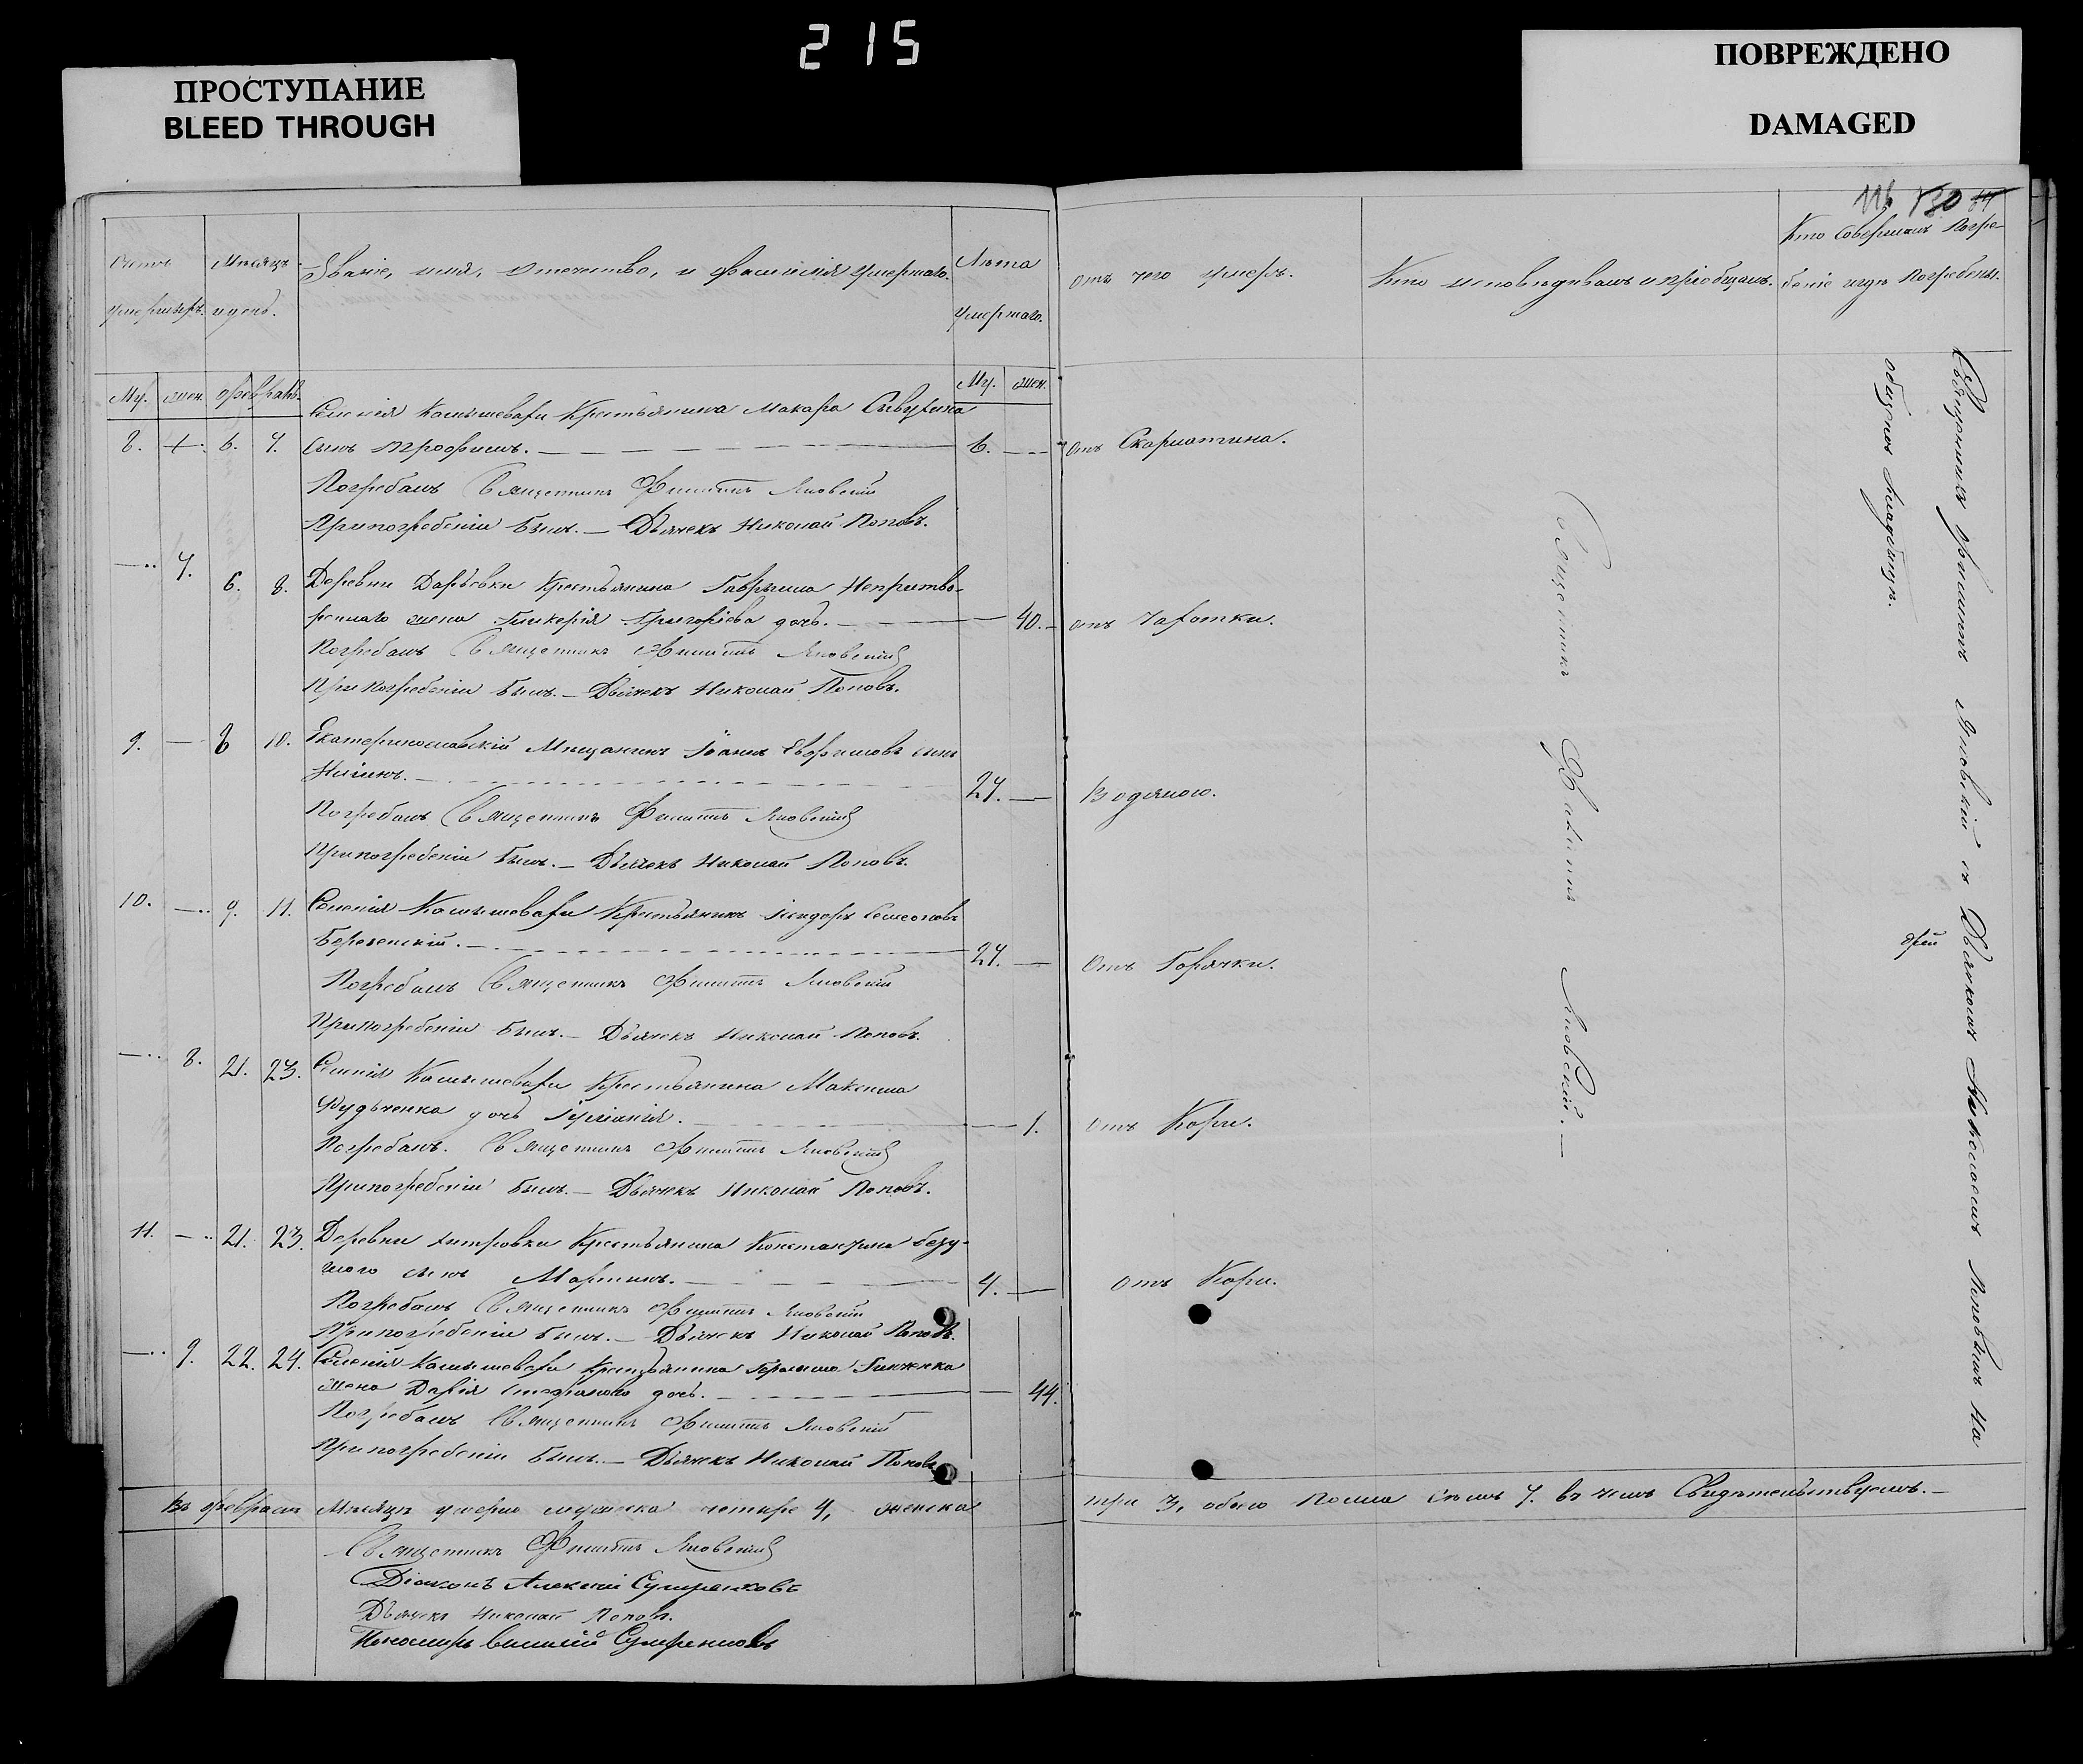 215
ПРОСТУПАНИЕ
BLEED THROUGH
ПОВРЕЖДЕНО
DAMAGED
116 130
Счетъ умершихъ.
Мѣсяцъ и день.
Званіе, имя, отечество, и фамилія умершаго.
Лѣта умершаго.
отъ чего умеръ.
Кто исповѣдывалъ и пріобщалъ.
Кто совершалъ погре-
беніе и гдѣ погребены.
Му. жен. февраль.
Му. жен.
Селенія Камышевахи Крестьянина Макара
8. 6. 7. сынъ Трофимъ. 6. отъ Скарлатина.
Погребалъ Священникъ Филиппъ Яновскій
При погребеніи былъ. — Дьячекъ Николай Поповъ.
7. 6. 8. Деревни Дарьевки Крестьянина Гаврыила Непритво-
реннаго жена Гликерія Григоріева дочь. 40. отъ Чахотки.
Погребалъ Священникъ Филиппъ Яновскій
При погребеніи былъ. — Дьячекъ Николай Поповъ.
9. — 8 10. Екатеринославскій Мѣщанинъ Іоаннъ сынъ
27. — Водяною.
Погребалъ Священникъ Филиппъ Яновскій
При погребеніи былъ. — Дьячекъ Николай Поповъ.
10. 9. 11. Селенія Камышевахи Крестьянинъ Исидоръ Семеоновъ
27. — Отъ Горячки.
Погребалъ Священникъ Филиппъ Яновскій
При погребеніи былъ. — Дьячекъ Николай Поповъ.
8. 21. 23. Селенія Камышевахи Крестьянина Максима
дочь Іуліанія. 1. отъ Кори.
Погребалъ. Священникъ Филиппъ Яновскій
При погребеніи былъ. — Дьячекъ Николай Поповъ.
11. 21. 23. Деревни Крестьянина Константина
сынъ Мартинъ. 4. — отъ Кори.
Погребалъ Священникъ Филиппъ Яновскій
При погребеніи былъ. — Дьячекъ Николай Поповъ.
9. 22. 24. Селенія Камышевахи Крестьянина
жена Дарія дочь. 44.
Погребалъ Священникъ Филиппъ Яновскій
При погребеніи былъ. — Дьячекъ Николай Поповъ
Священникъ Филиппъ Яновскій. —
Священникъ Филиппъ Яновскій съ Дьячкомъ Николаемъ Поповымъ на
общемъ кладбищѣ.
Въ февралѣ Мѣсяцѣ умерло мужеска четыре 4, женска три 3, обоего пола семь 7. въ чемъ Свидѣтельствуемъ. —
Священникъ Филиппъ Яновскій
Діаконъ Алексій
Дьячекъ Николай Поповъ.
Пономарь Василій